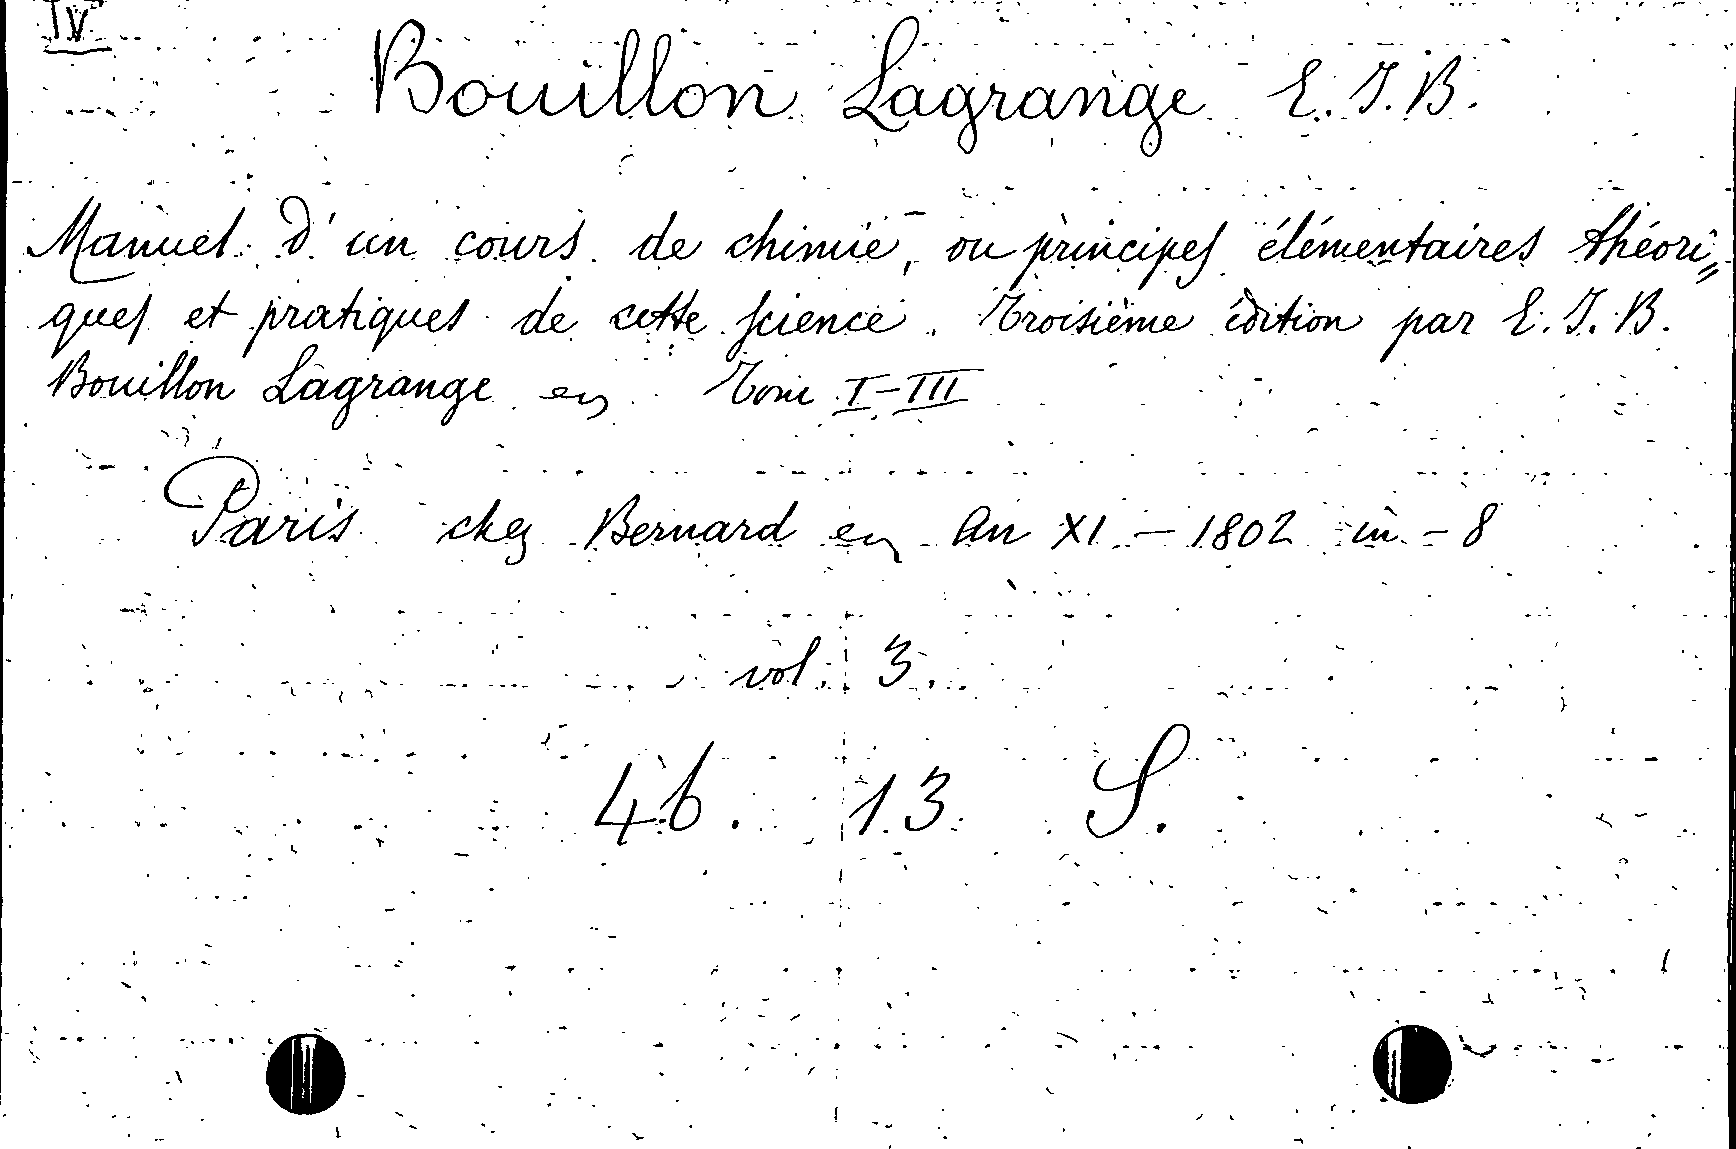 IV
Bouillon Lagrange E. J. B.
Manuel d'un cours de chimie, ou principes élémentaires théori=
ques et pratiques de cette science. Troisième édition par E. J. B.
Bouillon Lagrange en Tome I-III
Paris chez Bernard en An XI - 1802 in - 8
vol. 3.
46. 13. S.